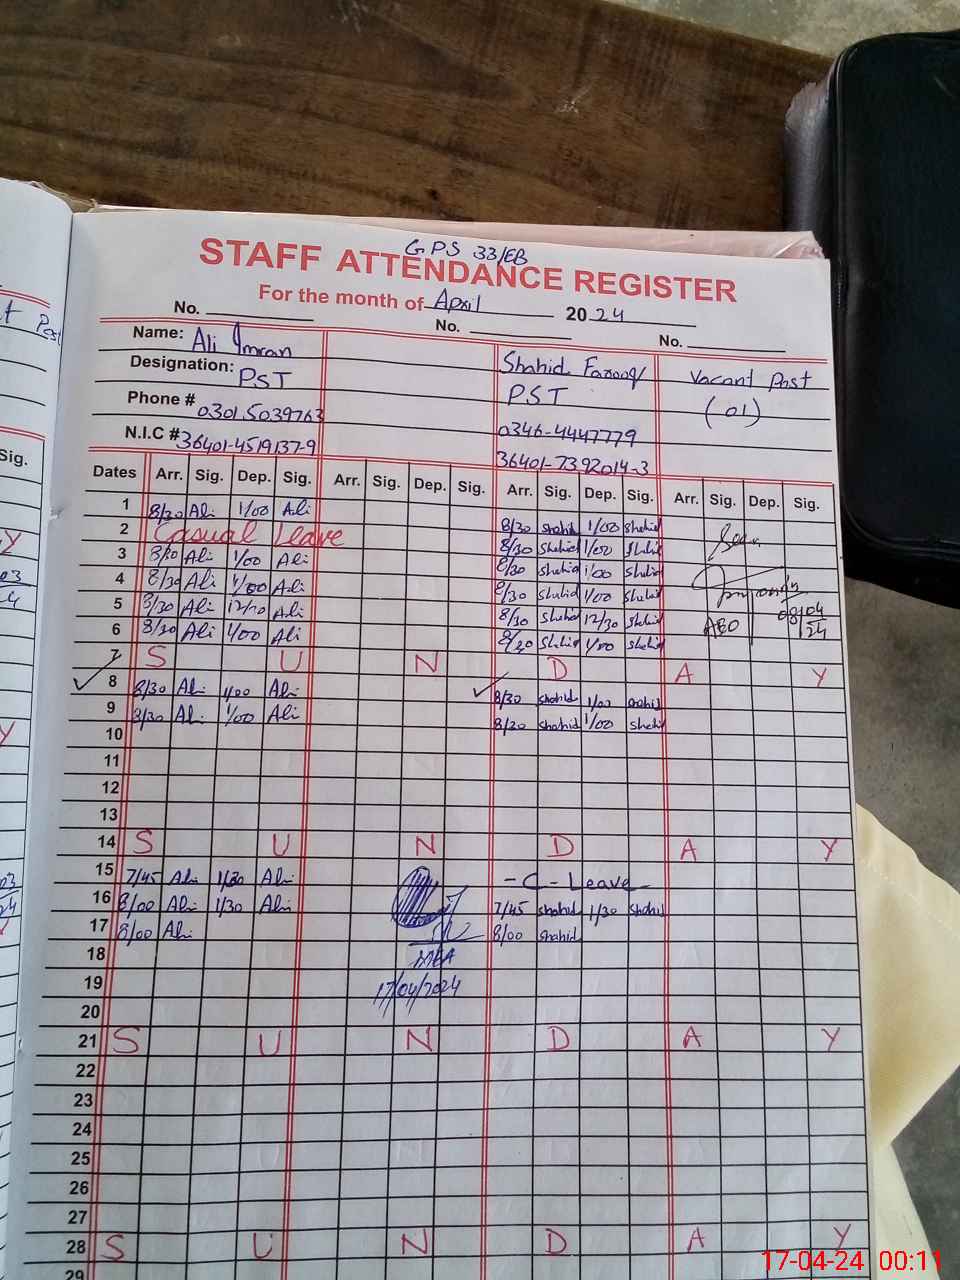 GPS 33/EB
STAFF ATTENDANCE REGISTER
For the month of April 2024
No. No. No.
Name: Ali Imran Shahid Farooq Vacant Post
Designation: PST PST (01)
Phone # 0301.5039763 0346-4447779
N.I.C # 36401-4519137-9 36401-7392014-3
Dates Arr. Sig. Dep. Sig. Arr. Sig. Dep. Sig. Arr. Sig. Dep. Sig. Arr. Sig. Dep. Sig.
1 8/30 Ali 1/00 Ali 8/30 Shahid 1/00 Shahid
2 Casual Leave 8/30 Shahid 1/00 Shahid
3 8/30 Ali 1/00 Ali 8/30 Shahid 1/00 Shahid
4 8/30 Ali 1/00 Ali 8/30 Shahid 1/00 Shahid
5 8/30 Ali 12/30 Ali 8/30 Shahid 12/30 Shahid AEO 08/04/24
6 8/30 Ali 1/00 Ali 8/30 Shahid 1/00 Shahid
7 S U N D A Y
8 8/30 Ali 1/00 Ali 8/30 Shahid 1/00 Shahid
9 8/30 Ali 1/00 Ali 8/30 Shahid 1/00 Shahid
10
11
12
13
14 S U N D A Y
15 7/45 Ali 1/30 Ali - C - Leave -
16 8/00 Ali 1/30 Ali 7/45 Shahid 1/30 Shahid
17 8/00 Ali 8/00 Shahid
18 MEA
19 17/04/2024
20
21 S U N D A Y
22
23
24
25
26
27
28 S U N D A Y
29
Sig.
17-04-24 00:11